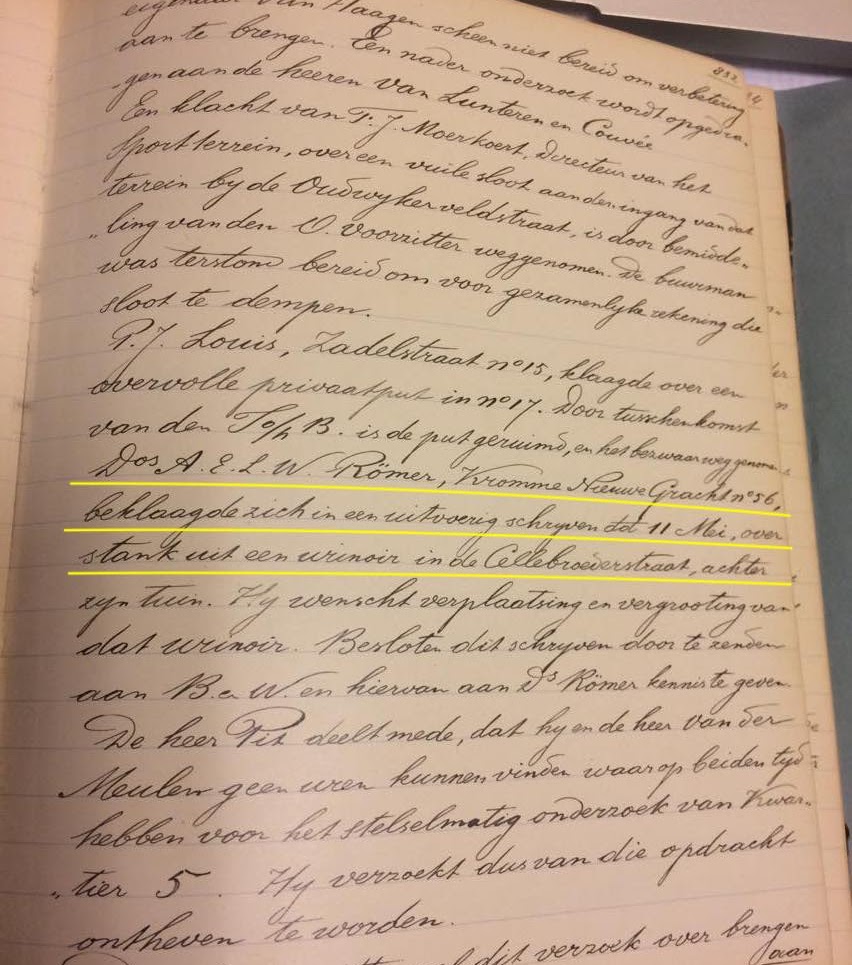 eigenaar van Haagen scheen niet bereid om verbetering
832
aan te brengen. Een nader onderzoek wordt opgedra-
-gen aan de heeren van Lunteren en Couvée
Een klacht van T. J. Moerkoert, Directeur van het
Sportterrein, over een vuile sloot aan den ingang van dat
terrein by de Oudwykerveldstraat, is door bemidde-
„ling van den O. Voorzitter weggenomen. De buurman
was terstond bereid om voor gezamenlyke rekening die
sloot te dempen.
P. J. Louis, Zadelstraat no 15, klaagde over een
overvolle privaatput in no 17. Door tusschenkomst
van den I o/h B. is de put geruimd, en het bezwaar weggenomen.
Dos A. E. L. W. Römer, Kromme Nieuwe Gracht no 56,
beklaagde zich in een uitvoerig schryven dd 11 Mei, over
stank uit een urinoir in de Cellebroederstraat, achter
zyn tuin. Hy wenscht verplaatsing en vergrooting van
dat urinoir. Besloten dit schryven door te zenden
aan B. en W. en hiervan aan Ds Römer kennis te geven.
De heer Pit deelt mede, dat hy en de heer van der
Meulen geen uren kunnen vinden waarop beiden tyd
hebben voor het stelselmatig onderzoek van Kwar-
„tier 5. Hy verzoekt dus van die opdracht
ontheven te worden.
dit verzoek over brengen
aan